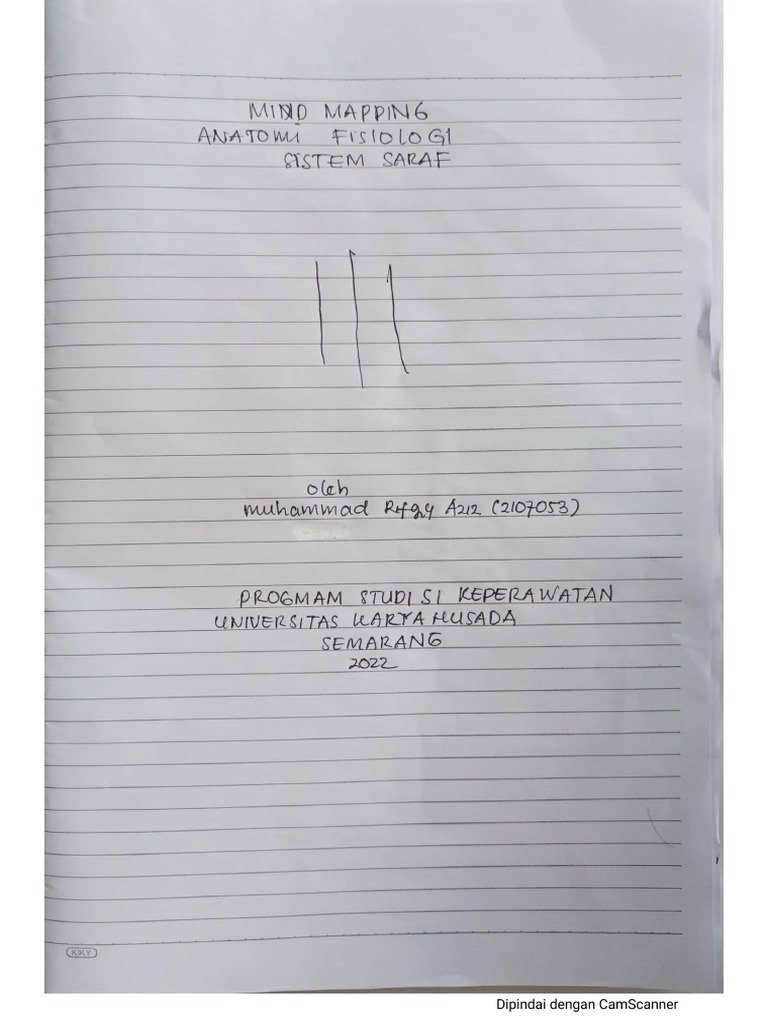 MIND MAPPING
ANATOMI FISIOLOGI
SISTEM SARAF
oleh
muhammad Rifqy Aziz (2107053)
PROGMAM STUDI S1 KEPERAWATAN
UNIVERSITAS KARYA HUSADA
SEMARANG
2022
KIKY
Dipindai dengan CamScanner